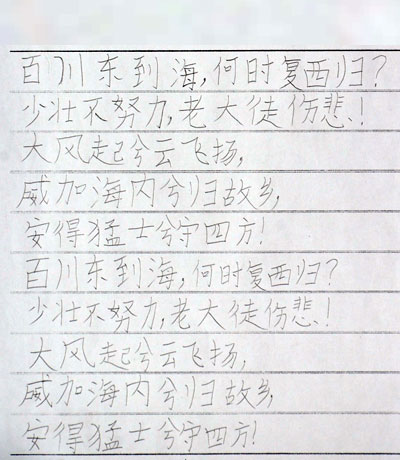 百川东到海,何时复西归?
少壮不努力,老大徒伤悲!
大风起兮云飞扬,
威加海内兮归故乡,
安得猛士兮守四方!
百川东到海,何时复西归?
少壮不努力,老大徒伤悲!
大风起兮云飞扬,
威加海内兮归故乡,
安得猛士兮守四方!